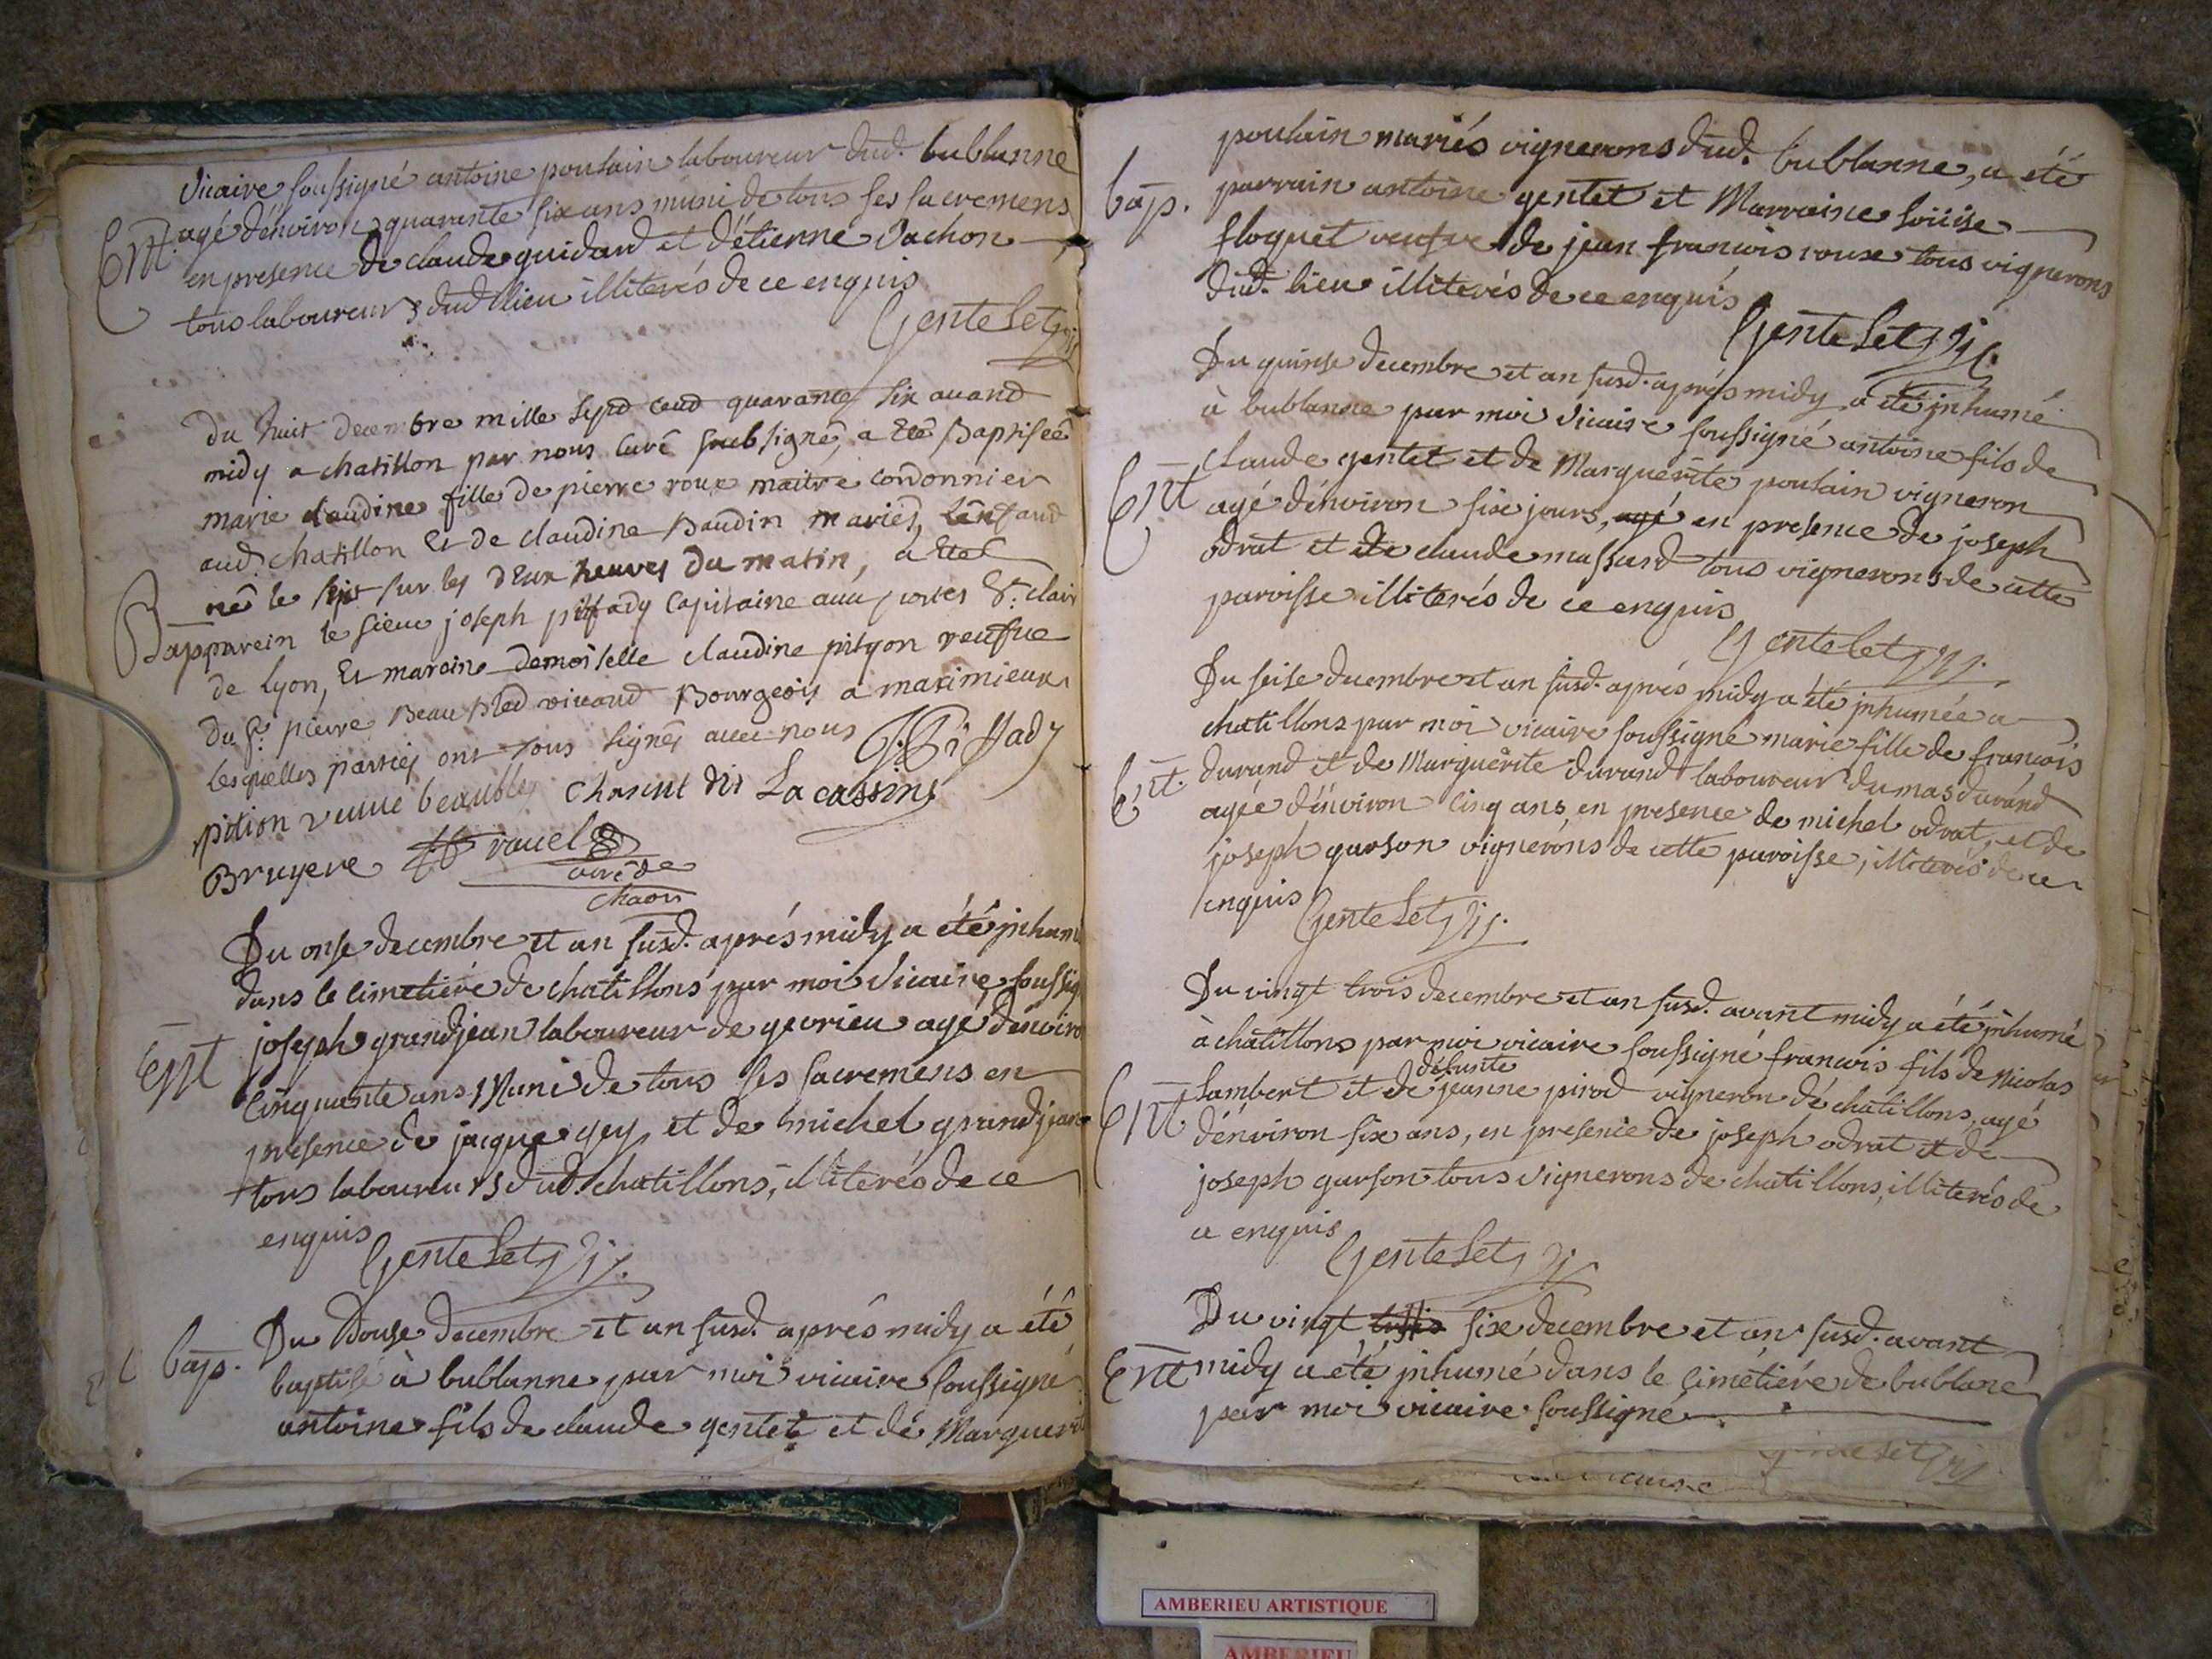 vicaire soussigné antoine poulain laboureur dud. bublanne
agé d'énviron quarante six ans muni de tous ses sacremens
Ent.
en presence de claude guidard et d'étienne vachon
tous laboureurs dud lieu illiterés de ce enquis
Gentelet
Du huit decembre mille sept cend quarante six auand
midy a chatillon par nous curé soubsigné, a eté Baptiseé
marie claudine fille de pierre roux maitre cordonnier
aud. chatillon Et de claudine Baudin mariés, lenfand
né le sept sur les deux heures du matin, a Eté
Bap
parein le sieur joseph piffady Capitaine aux portes St. clair
de Lyon, Et maraine demoiselle claudine pityon veufue
du Sr. pierre Beaupled viuand Bourgeois a maximieux
lesquelles parties ont tous signés auec nous J. Piffady
pition veuue beauble chasent dit Lacassins
Bruyere rauel
curé de
chaon
Du onse decembre et an susd. aprés midy a été jnhumé
dans le cimetiére de chatillons par moi vicaire soussig
Ent
joseph grandjean laboureur de gevrieu agé d'énviro
cinquante ans Muni de tous ses sacremens en
presence de jacque gey, et de michel grandjean
tous laboureurs dud. chatillons, illiterés de ce
enquis
Gentelet
Bap.
Du Douse decembre et an susd. aprés midy a été
baptisé à bublanne par moi vicaire soussigné
antoine fils de claude gentet et de Marguerit
poulain mariés vignerons dud. bublanne, a été
bap.
parrain antoine gentet et Marraine Loüise
floquet veufve de jean francois roux tous vignerons
dud. lieu illiterés de ce enquis
Gentelet
Du quinse decembre et an susd. aprés midy a été jnhumé
à bublanne par moi vicaire soussigné antoine fils de
claude gentet et de Marguérite poulain vigneron
Ent
agé d'énviron six jours, agé en presence de joseph
odrat et de claude massard tous vignerons de cette
paroisse illiterés de ce enquis
Gentelet
Du seise decembre et an susd. aprés midy a été jnhumée a
chatillons par moi vicaire soussigné marie fille de francois
Ent.
durand et de Marguérite durand laboureur du mas durand
agée d'énviron cinq ans, en presence de michel odrat, et de
joseph garson vignerons de cette paroisse, illiterés de ce
enquis
Gentelet
Du vingt trois decembre et an susd. avant midy a été jnhumé
à chatillons par moi vicaire soussigné francois fils de Nicolas
défunte
Lambert et de jeanne pirod vigneron de chatillons, agé
Ent.
d'énviron six ans, en presence de joseph odrat et de
joseph garson tous vignerons de chatillons, illiterés de
ce enquis
Gentelet
Du vingt six decembre et an susd. avant
Ent
midy a été jnhumé dans le cimétiére de bublane
par moi vicaire soussigné
AMBERIEU ARTISTIQUE
AMBERIEU